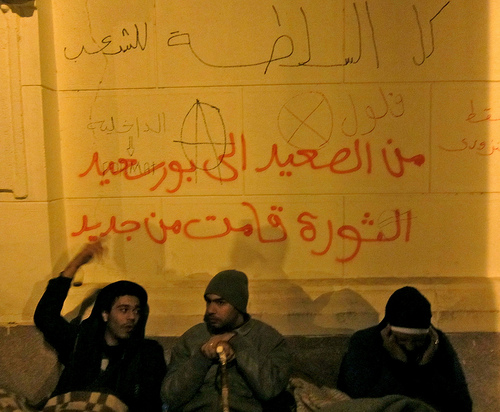 كل السلطة للشعب
فلول
الداخلية
من الصعيد الى بورسعيد
الثورة قامت من جديد